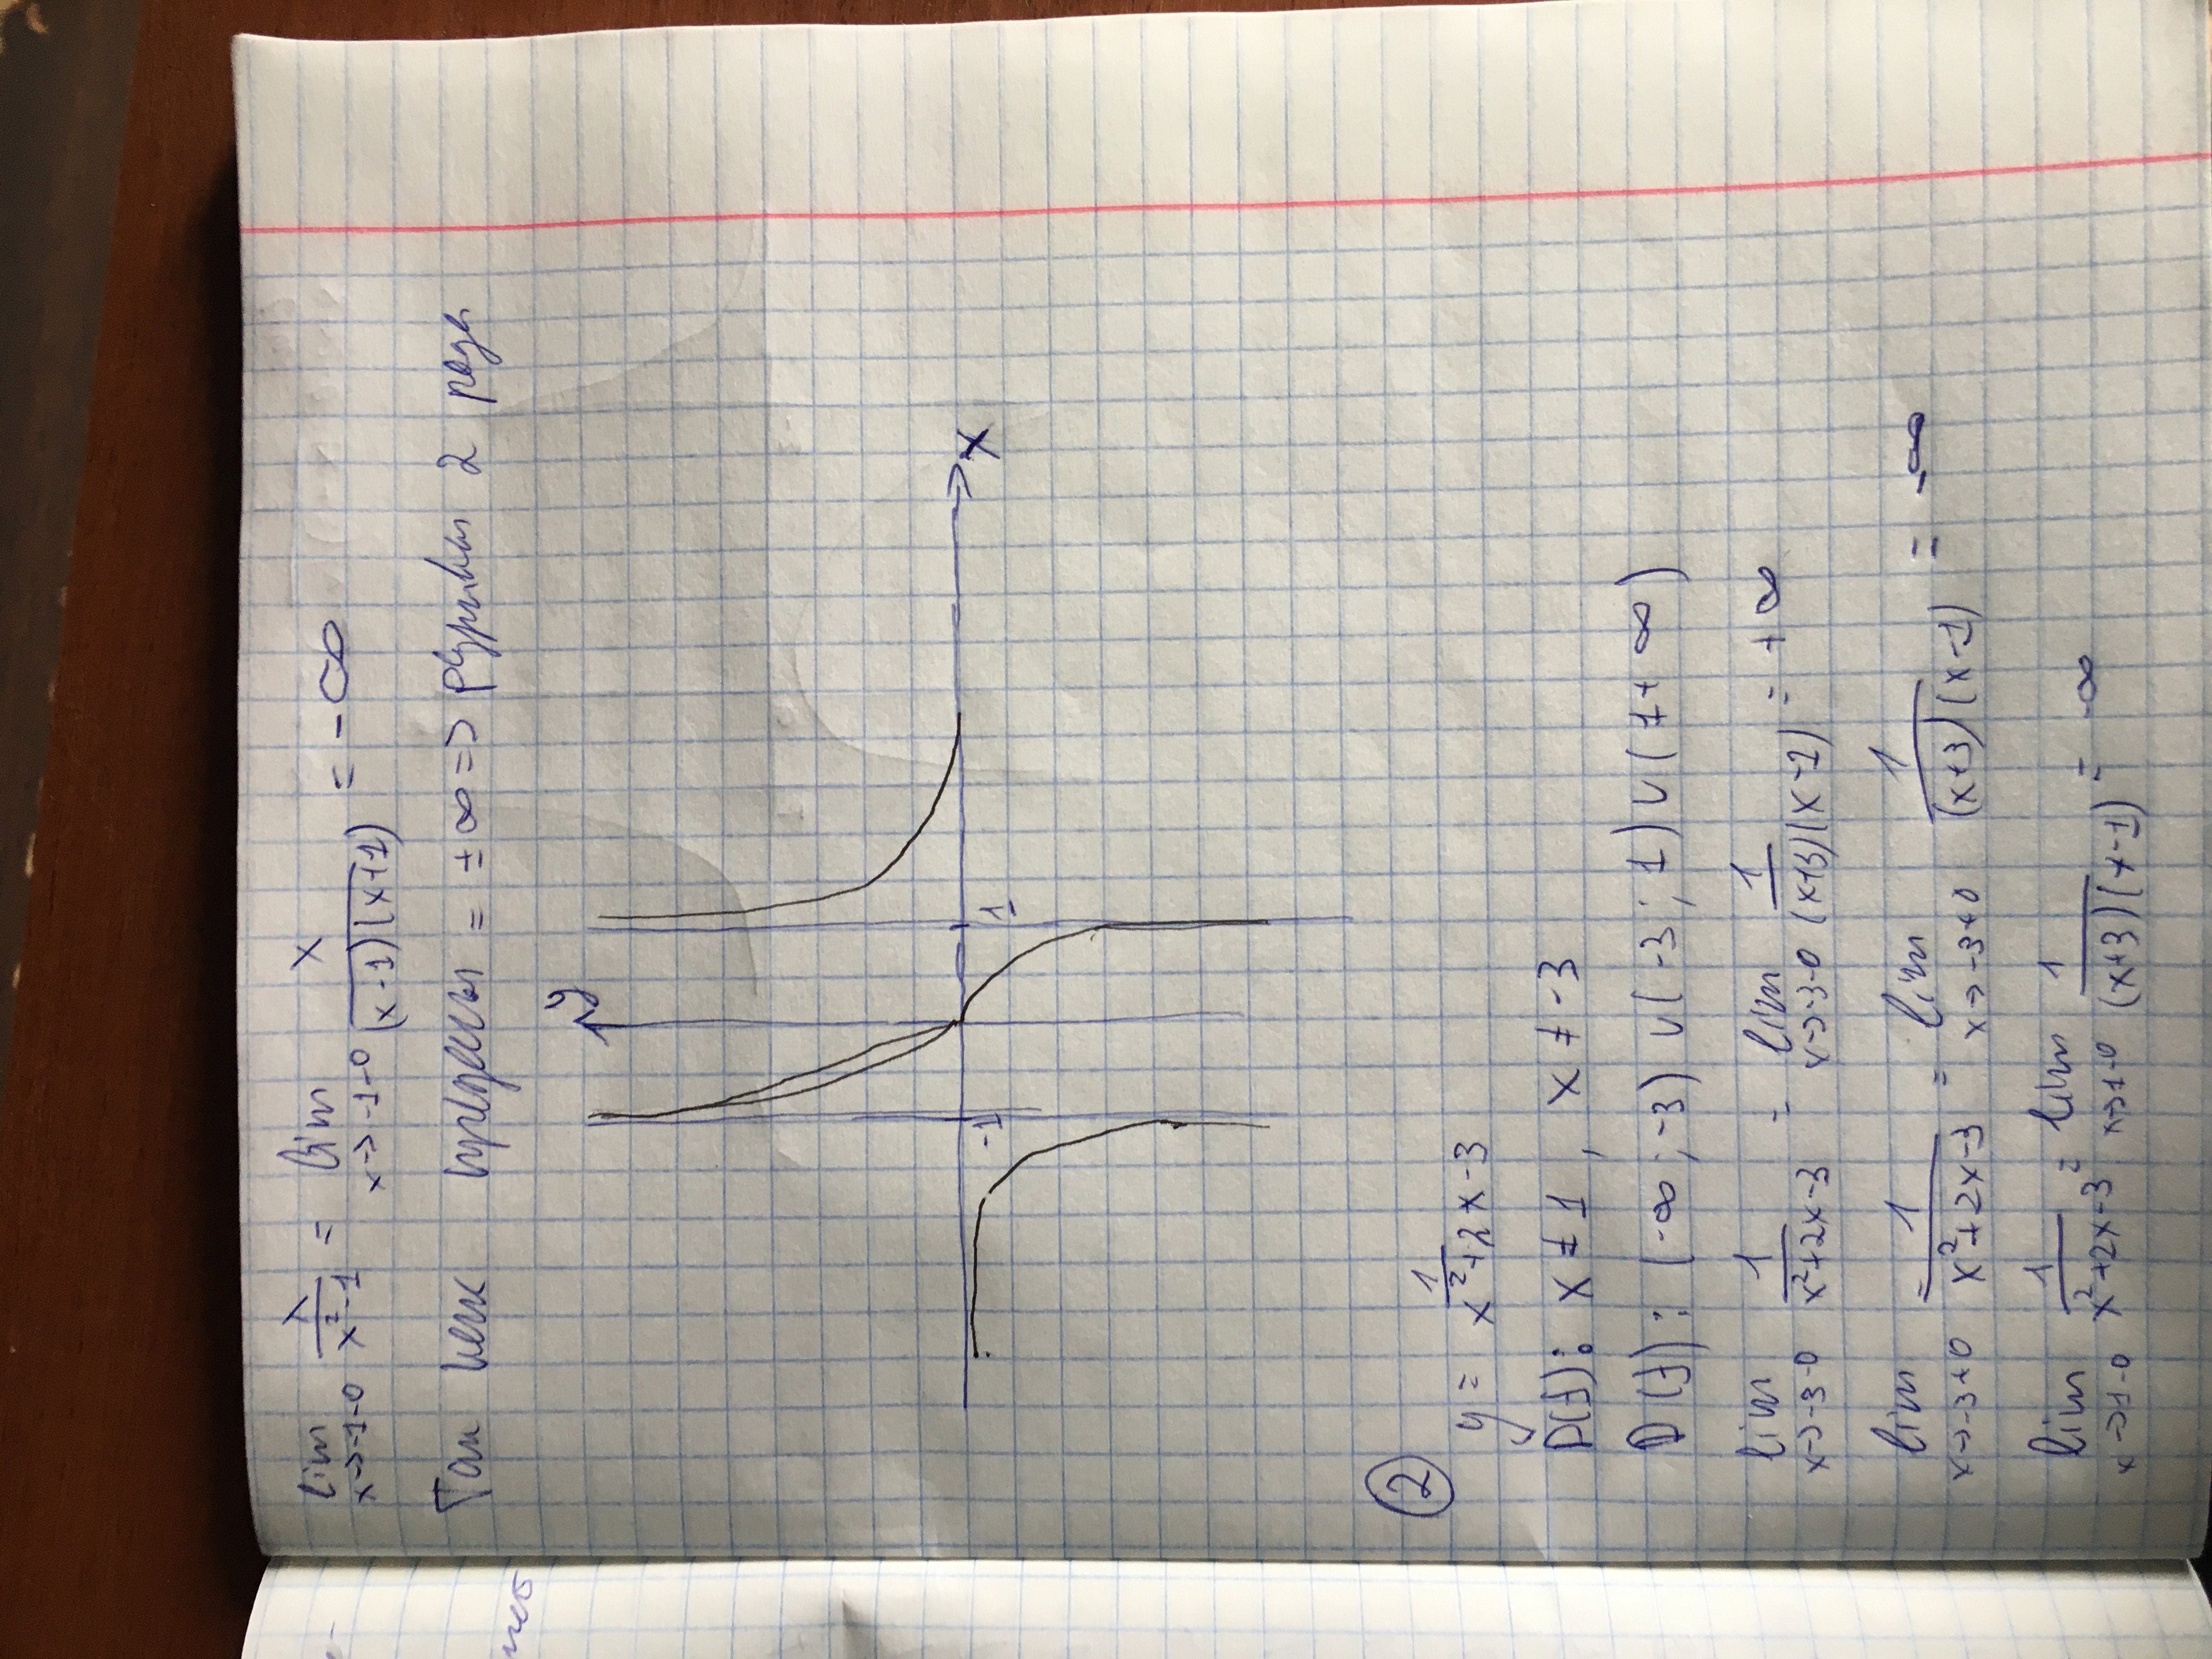 lim x→-1-0 x/(x²-1) = lim x→-1-0 x/((x-1)(x+1)) = -∞
Так как пределы = ±∞ => разрывы 2 рода
y
-1 1 x
2
y = 1/(x²+2x-3)
D(f): x ≠ 1, x ≠ -3
D(f): (-∞; -3) ∪ (-3; 1) ∪ (1+∞)
lim x→-3-0 1/(x²+2x-3) = lim x→-3-0 1/((x+3)(x-1)) = +∞
lim x→-3+0 1/(x²+2x-3) = lim x→-3+0 1/((x+3)(x-1)) = -∞
lim x→1-0 1/(x²+2x-3) = lim x→1-0 1/((x+3)(x-1)) = -∞